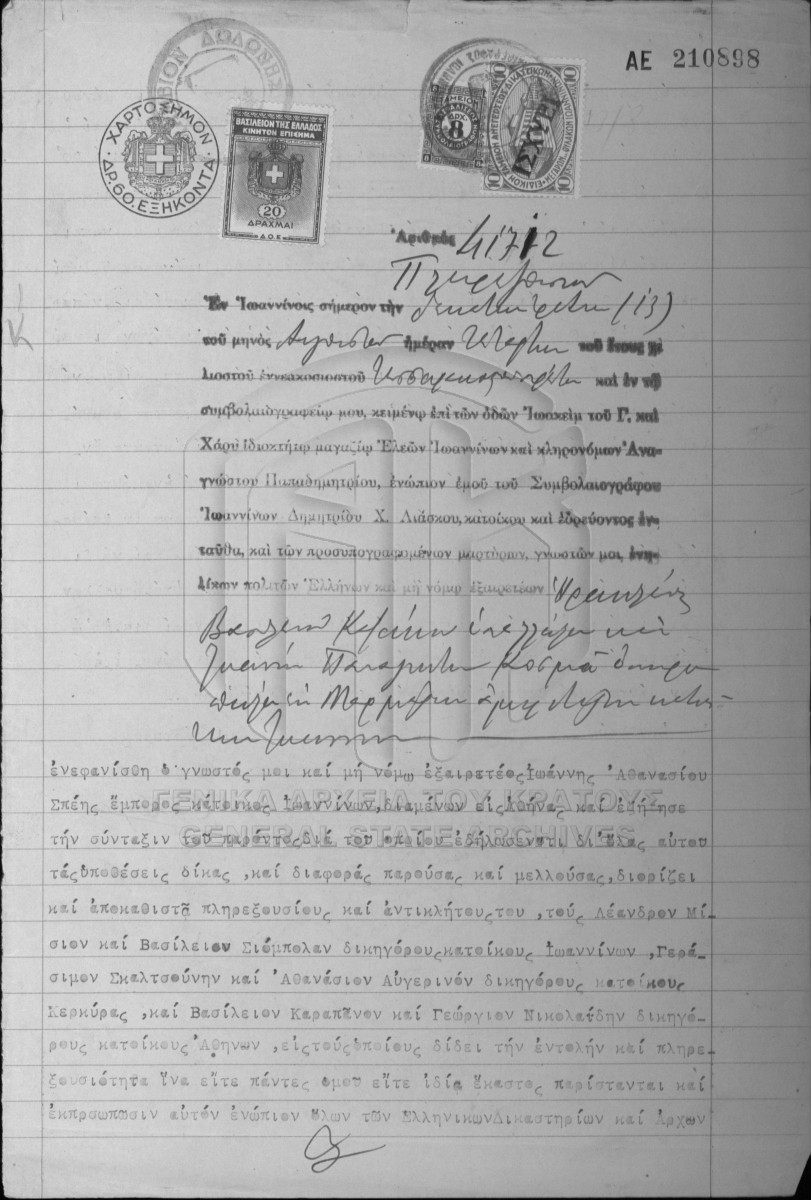 ΒΙΟΝ ΔΩΔΩΝΗΣ
ΑΕ 210898
ΧΑΡΤΟΣΗΜΟΝ
ΔΡ. 60. ΕΞΗΚΟΝΤΑ
ΒΑΣΙΛΕΙΟΝ ΤΗΣ ΕΛΛΑΔΟΣ
ΚΙΝΗΤΟΝ ΕΠΙΣΗΜΑ
20
ΔΡΑΧΜΑΙ
Δ.Ο.Ε.
8
10
ΙΣΧΥΕΙ
Ἀριθμὸς 41772
Πληρεξουσιον
Ἐν Ἰωαννίνοις σήμερον τὴν δεκάτην τρίτην (13)
τοῦ μηνὸς Αὐγούστου ἡμέραν Τετάρτην τοῦ ἔτους χι
λιοστοῦ ἐννεακοσιοστοῦ καὶ ἐν τῷ
συμβολαιογραφείῳ μου, κειμένῳ ἐπὶ τῶν ὁδῶν Ἰωακεὶμ τοῦ Γ. καὶ
Χάρυ ἰδιοκτήτῳ μαγαζίῳ Ἐλεῶν Ἰωαννίνων καὶ κληρονόμων Ἀνα-
γνώστου Παπαδημητρίου, ἐνώπιον ἐμοῦ τοῦ Συμβολαιογράφου
Ἰωαννίνων Δημητρίου Χ. Λιάσκου, κατοίκου καὶ ἑδρεύοντος ἐν-
ταῦθα, καὶ τῶν προσυπογραφομένων μαρτύρων, γνωστῶν μοι, ἐνη-
λίκων πολιτῶν Ἑλλήνων καὶ μὴ νόμῳ ἐξαιρετέων
Βασιλείου καὶ
Ἰωάννη Παναγιώτη Κοσμᾶ
ΓΕΝΙΚΑ ΑΡΧΕΙΑ ΤΟΥ ΚΡΑΤΟΥΣ
GENERAL STATE ARCHIVES
ἐνεφανίσθη ὁ γνωστός μοι καί μή νόμω ἐξαιρετέος Ἰωάννης Ἀθανασίου
Σπέης ἔμπορος κάτοικος Ἰωαννίνων, διαμένων εἰς Ἀθήνας καί ἐζήτησε
τήν σύνταξιν τοῦ παρόντος διά τοῦ ὁποίου ἐδήλωσεν ὅτι δι' ὅλας αὐτοῦ
τάς ὑποθέσεις δίκας, καί διαφοράς παρούσας καί μελλούσας, διορίζει
καί ἀποκαθιστᾶ πληρεξουσίους καί ἀντικλήτους του, τούς Λέανδρον Μί-
σιον καί Βασίλειον Σιόμπολαν δικηγόρους κατοίκους Ἰωαννίνων, Γερά-
σιμον Σκαλτσούνην καί Ἀθανάσιον Αὐγερινόν δικηγόρους κατοίκους
Κερκύρας, καί Βασίλειον Καραπᾶνον καί Γεώργιον Νικολαΐδην δικηγό-
ρους κατοίκους Ἀθηνῶν, εἰς τούς ὁποίους δίδει τήν ἐντολήν καί πληρε-
ξουσιότητα ἵνα εἴτε πάντες ὁμοῦ εἴτε ἰδίᾳ ἕκαστος παρίστανται καί
ἐκπρσωπωσιν αὐτόν ἐνώπιον ὅλων τῶν Ἑλληνικῶν Δικαστηρίων καί Ἀρχῶν